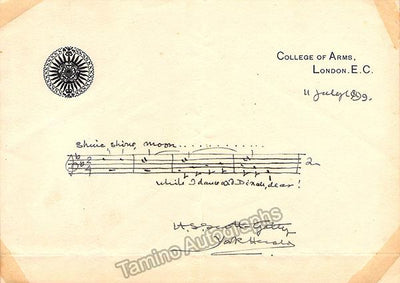 COLLEGE OF ARMS,
LONDON. E.C.
11 July 1899.
Shine, shine, moon
while I dance with Dinah, dear!
York Herald
Tamino Autographs